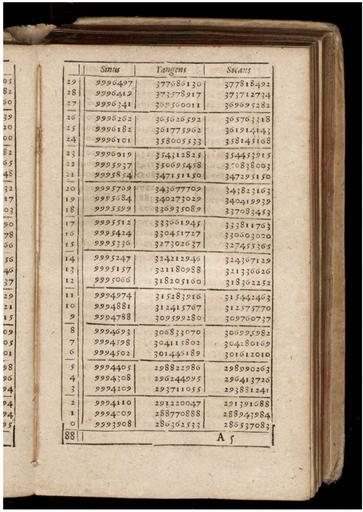 Sinus Tangens Secans
29 9996497 377686130 377818492
28 9996419 373578917 373712734
27 9996341 369560011 369695282
26 9996262 365626592 365763318
25 9996182 361775962 361914143
24 9996101 358005533 358145168
23 9996019 354312825 354453915
22 9995937 350695458 350838003
21 9995854 347151150 347295150
20 9995769 343677709 343823163
19 9995684 340273029 340419939
18 9995599 336935089 337083453
17 9995512 333661945 333811763
16 9995424 330451727 330603020
15 9995336 327302637 327455365
14 9995247 324212946 324367129
13 9995157 321180988 321336626
12 9995066 318205160 318362252
11 9994974 315283916 315442463
10 9994881 312415767 312575770
9 9994788 309599280 309760737
8 9994693 306833070 306995982
7 9994598 304115802 304280169
6 9994502 301446189 301612010
5 9994405 298822986 298990263
4 9994308 296244995 296413726
3 9994209 293711055 293881241
2 9994110 291220047 291391688
1 9994009 288770888 288943984
0 9993908 286362533 286537083
88 A 5